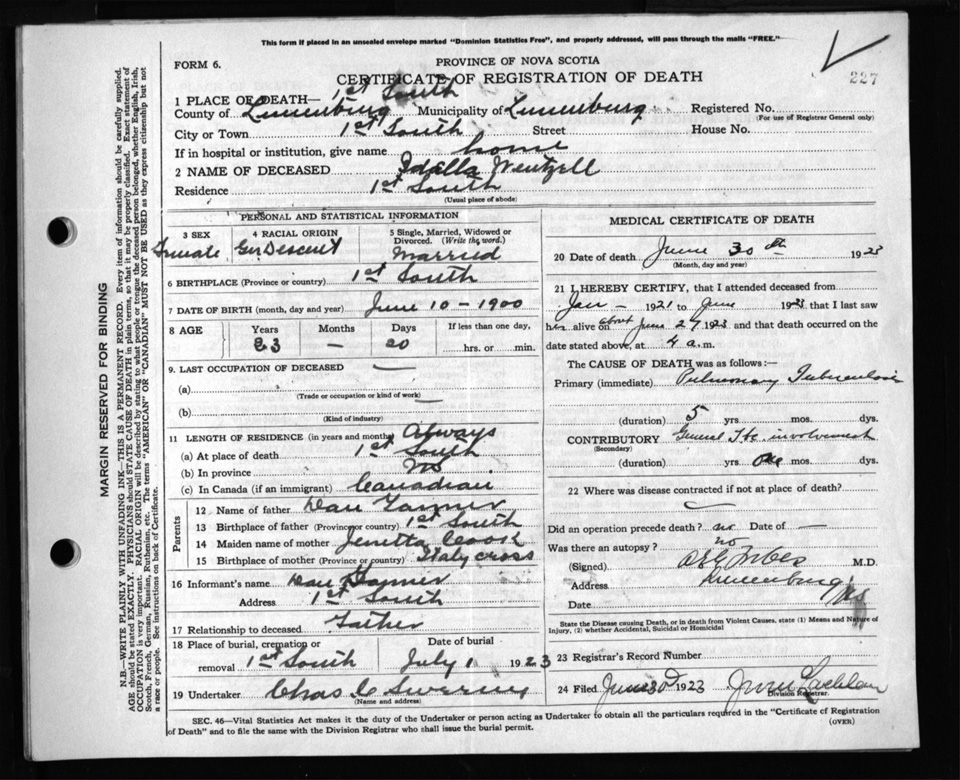 This form if placed in an unsealed envelope marked "Dominion Statistics Free", and properly addressed, will pass through the mails "FREE."
FORM 6.
PROVINCE OF NOVA SCOTIA
227
CERTIFICATE OF REGISTRATION OF DEATH
1 PLACE OF DEATH— 1st South
County of Lunenburg Municipality of Lunenburg Registered No.
(For use of Registrar General only)
City or Town 1st South Street House No.
If in hospital or institution, give name home
2 NAME OF DECEASED Idella Wentzell
Residence 1st South
(Usual place of abode)
PERSONAL AND STATISTICAL INFORMATION
3 SEX
Female
4 RACIAL ORIGIN
Ger Descent
5 Single, Married, Widowed or Divorced. (Write the word.)
Married
6 BIRTHPLACE (Province or country) 1st South
7 DATE OF BIRTH (month, day and year) June 10 – 1900
8 AGE Years Months Days If less than one day
23 — 20 hrs. or min.
9. LAST OCCUPATION OF DECEASED —
(a)
(Trade or occupation or kind of work)
(b) —
(Kind of industry)
11 LENGTH OF RESIDENCE (in years and months) Always
(a) At place of death 1st South
(b) In province NS
(c) In Canada (if an immigrant) Canadian
Parents
12 Name of father Dan Tanner
13 Birthplace of father (Province or country) 1st South
14 Maiden name of mother Jenetta Cook
15 Birthplace of mother (Province or country) Italy cross
16 Informant's name Dan Tanner
Address 1st South
17 Relationship to deceased Father
18 Place of burial, cremation or removal 1st South
Date of burial July 1 1923
19 Undertaker Chas
(Name and address)
MEDICAL CERTIFICATE OF DEATH
20 Date of death June 30th 1923
(Month, day and year)
21 I HEREBY CERTIFY, that I attended deceased from
Jan – 1921 to June 1923 that I last saw
her alive on about June 27 1923 and that death occurred on the
date stated above, at 4 a.m.
The CAUSE OF DEATH was as follows:—
Primary (immediate) Pulmonary Tuberculosis
(duration) 5 yrs. mos. dys.
CONTRIBUTORY General involvement
(Secondary)
(duration) yrs. One mos. dys.
22 Where was disease contracted if not at place of death?
Did an operation precede death? no Date of —
Was there an autopsy? no
(Signed) M.D.
Address Lunenburg NS
Date
State the Disease causing Death, or in death from Violent Causes, state (1) Means and Nature of Injury, (2) whether Accidental, Suicidal or Homicidal
23 Registrar's Record Number
24 Filed June 30 1923
Division Registrar.
SEC. 46—Vital Statistics Act makes it the duty of the Undertaker or person acting as Undertaker to obtain all the particulars required in the "Certificate of Registration
of Death" and to file the same with the Division Registrar who shall issue the burial permit.
(OVER)
MARGIN RESERVED FOR BINDING
N.B.—WRITE PLAINLY WITH UNFADING INK—THIS IS A PERMANENT RECORD. Every item of information should be carefully supplied.
AGE should be stated EXACTLY. PHYSICIANS should STATE CAUSE OF DEATH in plain terms, so that it may be properly classified. Exact statement of
OCCUPATION is very important. RACIAL ORIGIN will be described by stating to what people or tongue the deceased person belonged, whether English, Irish,
Scotch, French, German, Russian, Ruthenian, etc. The terms "AMERICAN" or "CANADIAN" MUST NOT BE USED as they express citizenship but not
a race or people. See instructions on back of Certificate.